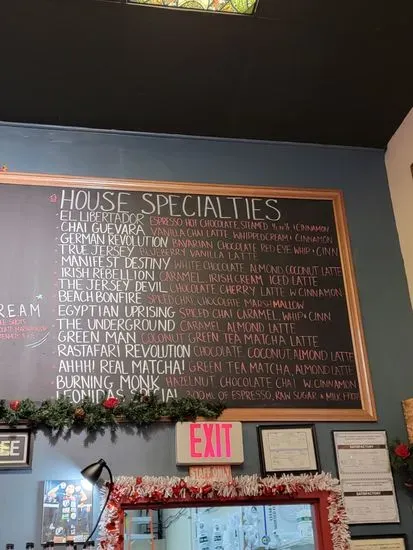 HOUSE SPECIALTIES
EL LIBERTADOR ESPRESSO HOT CHOCOLATE, STEAMED ½ n ½ + CINNAMON
CHAI GUEVARA VANILLA CHAI LATTE WHIPPEDCREAM + CINNAMON
GERMAN REVOLUTION BAVARIAN CHOCOLATE RED EYE WHIP + CINN
TRUE JERSEY BLUEBERRY VANILLA LATTE
MANIFEST DESTINY WHITE CHOCOLATE ALMOND COCONUT LATTE
IRISH REBELLION CARAMEL IRISH CREAM ICED LATTE
THE JERSEY DEVIL CHOCOLATE CHERRY LATTE W CINNAMON
BEACH BONFIRE SPICED CHAI, CHOCOLATE MARSHMALLOW
EGYPTIAN UPRISING SPICED CHAI CARAMEL, WHIP + CINN
THE UNDERGROUND CARAMEL ALMOND LATTE
GREEN MAN COCONUT GREEN TEA MATCHA LATTE
RASTAFARI REVOLUTION CHOCOLATE COCONUT ALMOND LATTE
AHHH! REAL MATCHA! GREEN TEA MATCHA, ALMOND LATTE
BURNING MONK HAZELNUT CHOCOLATE CHAI W. CINNAMON
LEONIDAS SPECIAL OF ESPRESSO, RAW SUGAR + MILK
REAM
EE
EXIT
STAFF ONLY
SATISFACTORY
SATISFACTORY